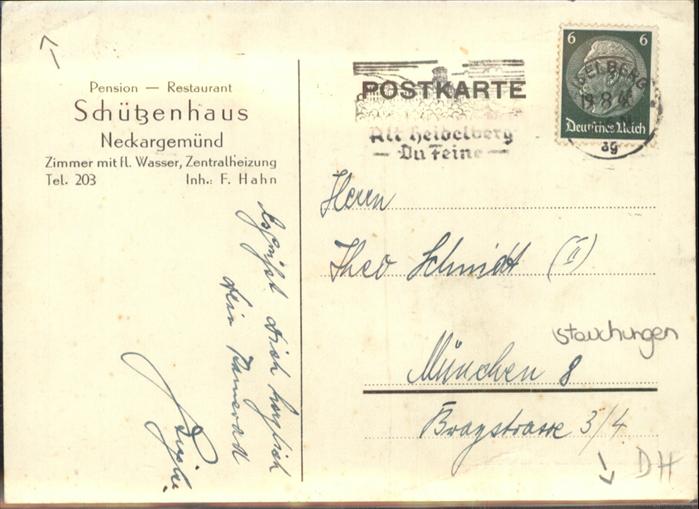 Pension — Restaurant
Schützenhaus
Neckargemünd
Zimmer mit fl. Wasser, Zentralheizung
Tel. 203 Inh.: F. Hahn
Es grüßt dich herzlich
dein Kamerad
POSTKARTE
Alt Heidelberg
Du Feine
6 6
Deutsches Reich
Herrn
Theo Schmidt (II)
stauchungen
München 8
Bragstrasse 3/4
DH